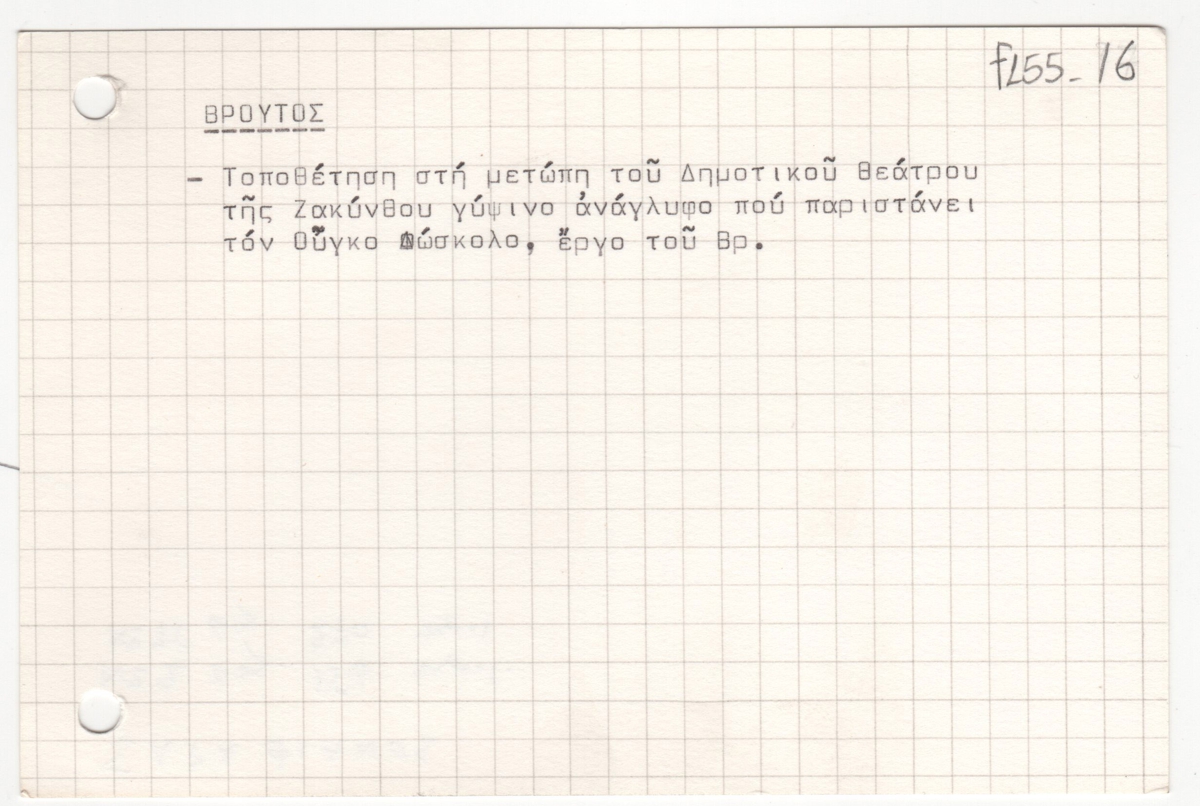 fL55_ 16
ΒΡΟΥΤΟΣ
- Τοποθέτηση στή μετώπη τοῦ Δημοτικοῦ Θεάτρου
τῆς Ζακύνθου γύψινο ἀνάγλυφο πού παριστάνει
τόν Οὖγκο Δώσκολο, ἔργο τοῦ Βρ.